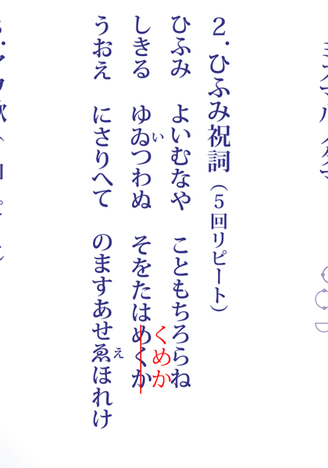 ２．ひふみ祝詞（５回リピート）
ひふみ　よいむなや　こともちろらね
くめか
い
しきる　ゆゐつわぬ　そをたはめくか
え
うおえ　にさりへて　のますあせゑほれけ